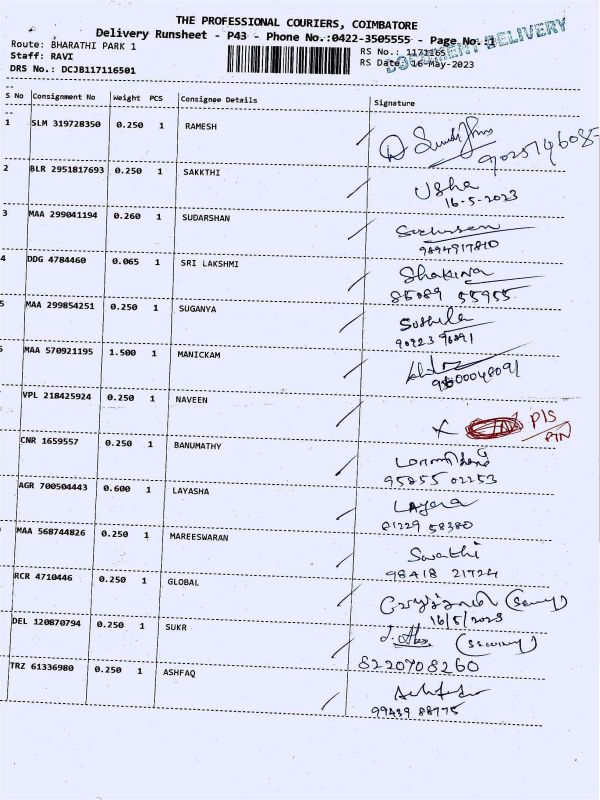 THE PROFESSIONAL COURIERS, COIMBATORE
Delivery Runsheet - P43 - Phone No.:0422-3505555 - Page No.:1
DOCUMENT DELIVERY
Route: BHARATHI PARK 1
RS No.: 1171165
Staff: RAVI
RS Date: 16-May-2023
DRS No.: DCJB117116501
S No Consignment No Weight PCS Consignee Details Signature
1 SLM 319728350 0.250 1 RAMESH
2 BLR 2951817693 0.250 1 SAKKTHI
Usha
16-5-2023
3 MAA 299041194 0.260 1 SUDARSHAN
9894917810
4 DDG 4784460 0.065 1 SRI LAKSHMI
Shakina
85089 55955
5 MAA 299854251 0.250 1 SUGANYA
Sushila
90923 96091
MAA 570921195 1.500 1 MANICKAM
VPL 218425924 0.250 1 NAVEEN
X P1S
PIN
CNR 1659557 0.250 1 BANUMATHY
95855 02253
AGR 700504443 0.600 1 LAYASHA
81229 58380
MAA 568744826 0.250 1 MAREESWARAN
Swathi
98418 21724
RCR 4710446 0.250 1 GLOBAL
16/5/2023
DEL 120870794 0.250 1 SUKR
(Security)
8220708260
TRZ 61336980 0.250 1 ASHFAQ
99439 88775